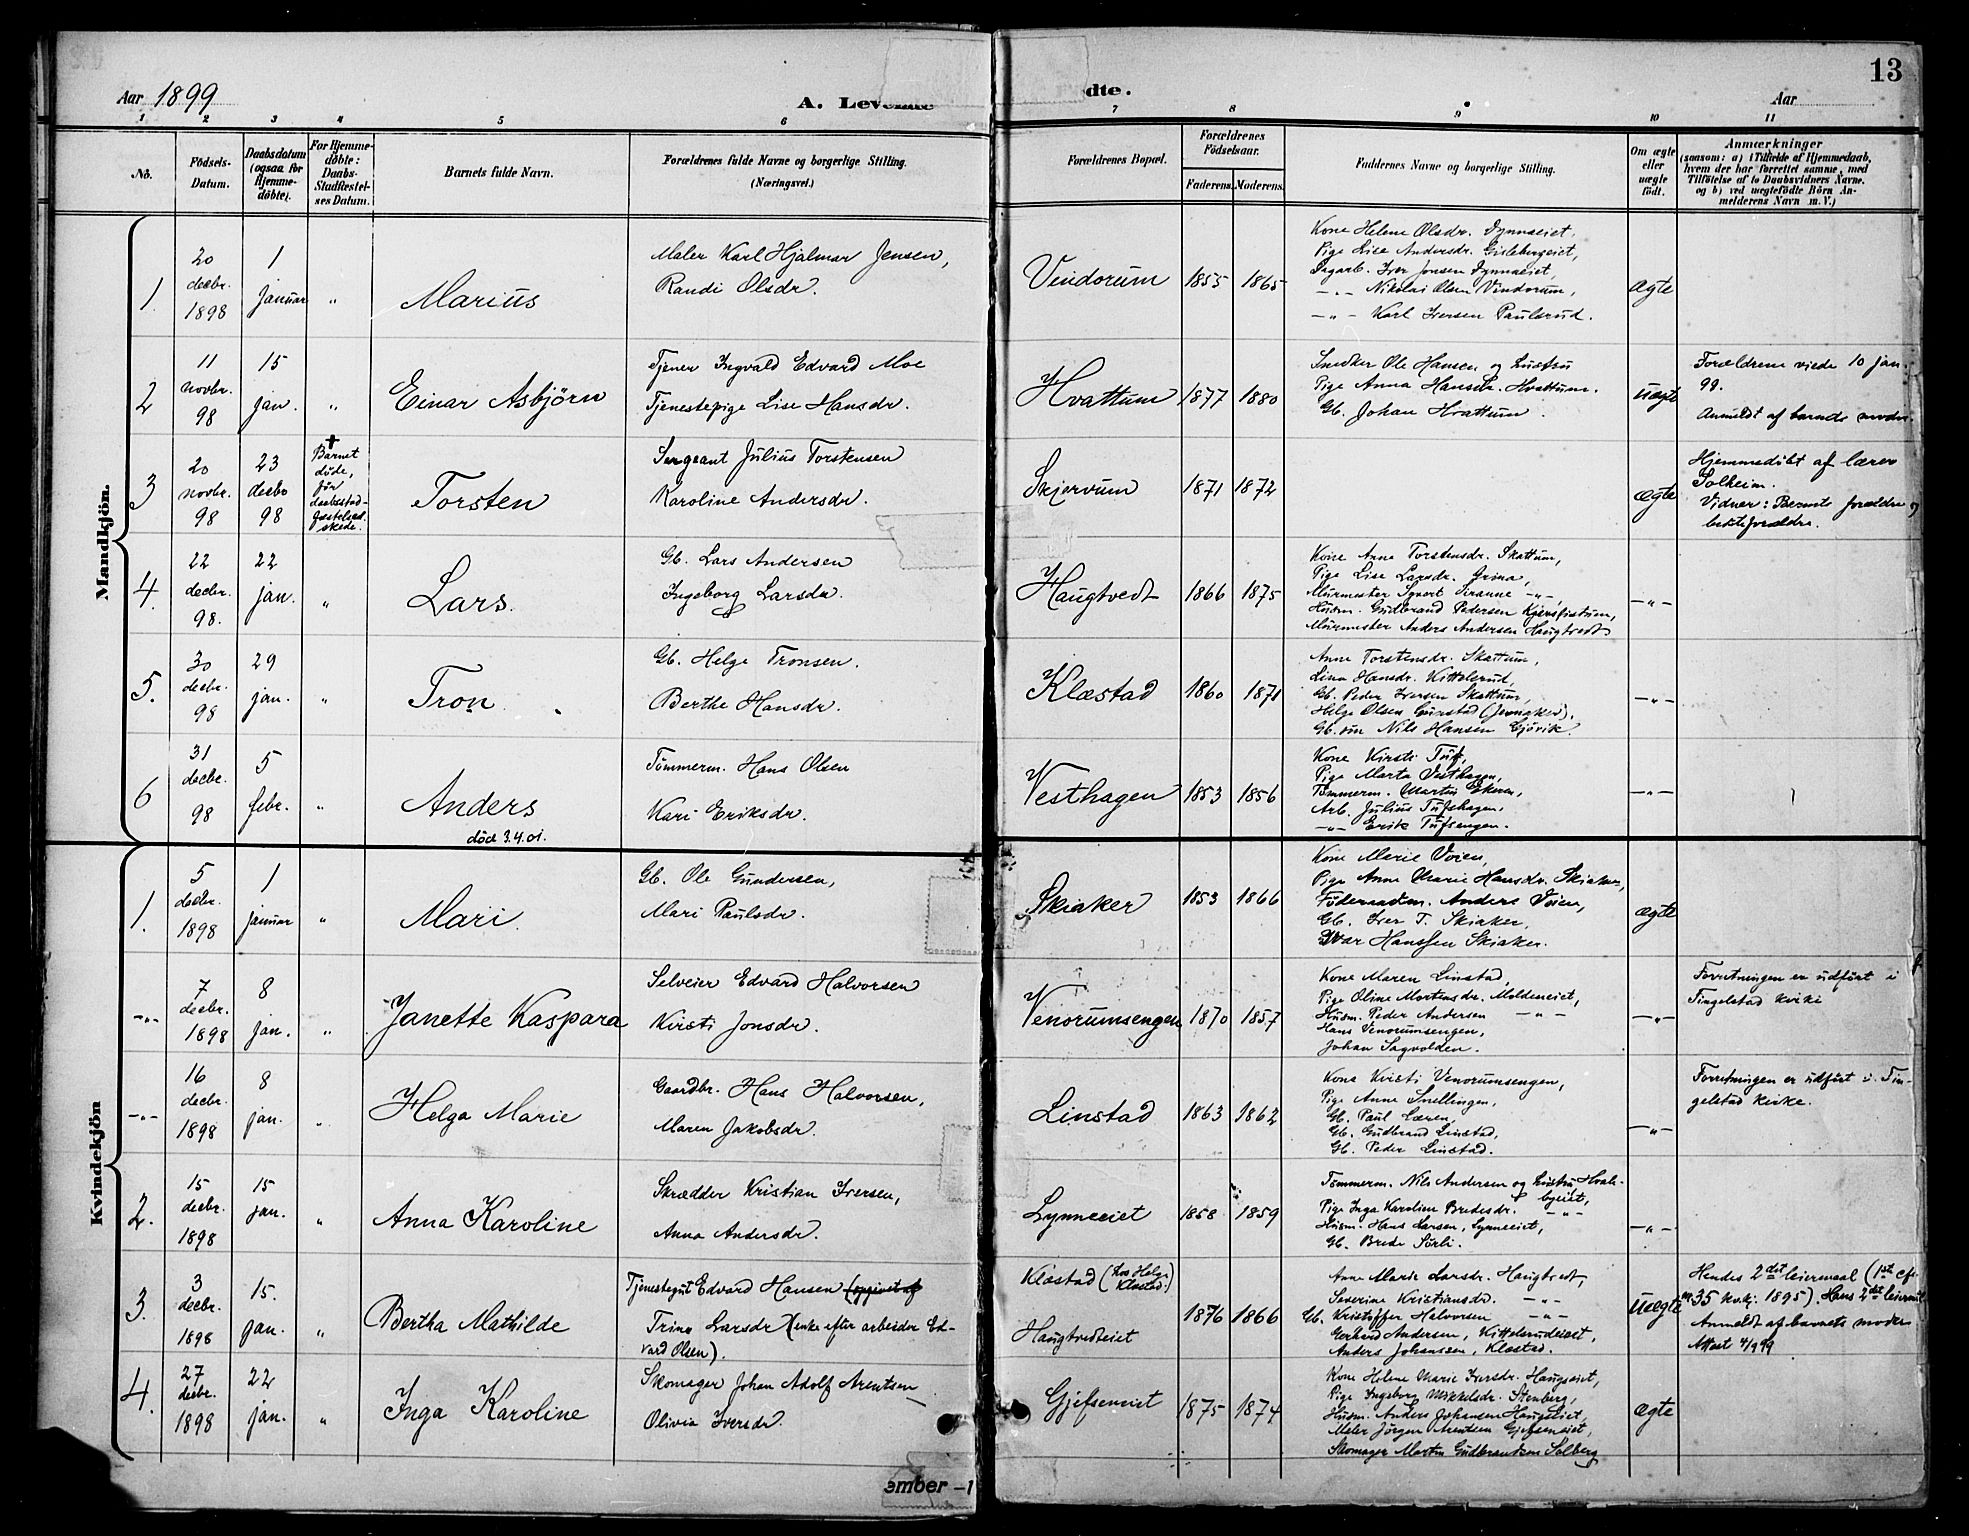 13
Aar 1899
A. Levende
dte.
Aar
1 2 3 4 5 6 7 8 9 10 11
No.
Födsels-Datum.
Daabsdatum (ogsaa for Hjemme-döbte).
For Hjemme-döbte: Daabs-Stadfæstel-ses Datum.
Barnets fulde Navn.
Forældrenes fulde Navne og borgerlige Stilling.
(Næringsvei.)
Forældrenes Bopæl.
Forældrenes Födselsaar.
Faderens. Moderens.
Faddernes Navne og borgerlige Stilling.
Om ægte eller uægte født.
Anmærkninger
(saasom: a) i Tilfælde af Hjemmedaab,
hvem der har forrettet samme, med
Tilföielse af to Daabsvidners Navne,
og b) ved uægtefödte Börn An-
melderens Navn m. V.)
Mandkjön.
1. 20 decbr. 1898 1 januar " Marius
Maler Karl Hjalmar Jensen,
Randi Olsdr.
Vendorum 1855 1865
Kone Helene Olsdr. Lynneeiet,
Pige Lise Andersdr. Gislebergeiet,
Dagarb. Iver Jonsen Lynneeiet,
—"— Nikolai Olsen Vendorum,
—"— Karl Iversen Paulsrud.
ægte
2 11 novbr. 98 15 jan. " Einar Asbjörn
Tjener Ingvald Edvard Moe
Tjenestepige Lise Hansdr.
Hvattum 1877 1880
Snedker Ole Hansen og hustru
Pige Anna Hansdr. Hvattum.
Gb. Johan Hvattum.
uægte
Forældrene viede 10 jan. 99.
Anmeldt af barnets moder.
3 20 novbr. 98 23 decbr 98
† Barnet döde, før daabsstad-fæstelsen skede.
Torsten
Sergeant Julius Torstensen
Karoline Andersdr.
Skjervum 1871 1872
ægte
Hjemmedöbt af lærer
Solheim.
Vidner: Barnets forældre og
bedsteforældre.
4. 22 decbr. 98. 22 jan. " Lars.
Gb. Lars Andersen
Ingeborg Larsdr.
Haugtvedt 1866 1875
Kone Anne Torstensdr. Skattum,
Pige Lise Larsdr. Grina,
Murmester Sivert —"—,
Husm. Gudbrand Pedersen
Murmester Anders Andersen Haugtvedt
—"—
5. 30 decbr. 98 29 jan. " Tron
Gb. Helge Tronsen.
Berthe Hansdr.
Klæstad 1860 1871
Anne Torstensdr. Skattum,
Lina Hansdr. Kittelsrud,
Gb. Peder Iversen Skattum,
Helge Olsen Gunstad (Jevnaker),
Gb. søn Nils Hansen Gjövik.
—"—
6 31 decbr. 98 5 febr. " Anders
död 3.4.01.
Tömmerm. Hans Olsen
Kari Eriksdr.
Vesthagen 1853 1856
Kone Kirsti Tuf,
Pige Marta Vesthagen,
Tømmerm. Martin Ekern,
Arb. Julius Tufshagen,
—"— Erik Tufsengen.
—"—
Kvindekjön
1. 5 decbr. 1898 1 januar " Mari.
Gb. Ole Gundersen,
Mari Paulsdr.
Skiaker 1853 1866
Kone Marie Voien,
Pige Anne Marie Hansdr. Skiaker,
Föderaadsm. Anders Voien,
Gb. Iver T. Skiaker,
Ivar Hanssen Skiaker.
ægte
—"— 7 decbr. 1898 8 jan. " Janette Kaspara
Selveier Edvard Halvorsen
Kirsti Jonsdr.
Venorumsengen 1870 1857
Kone Maren Linstad,
Pige Oline Mortensdr. Moldeneiet,
Husm. Peder Andersen —"—
Hans Venorumsengen,
Johan Sagvolden.
—"—
Forretningen er udfört i
Tingelstad kirke
—"— 16 decbr. 1898 8 jan. " Helga Marie
Gaardbr. Hans Halvorsen,
Maren Jakobsdr.
Linstad 1863 1862
Kone Kirsti Venorumsengen,
Pige Anne Snellingen,
Gb. Paul Læren,
Gb. Gudbrand Linstad,
Gb. Peder Linstad.
—"—
Forretningen er udfört i Tin-
gelstad kirke.
2. 15 decbr. 1898 15 jan. " Anna Karoline
Skrædder Kristian Iversen,
Anna Andersdr.
Lynneeiet 1858 1859
Tömmerm. Nils Andersen og hustru Hvale-
byeiet,
Pige Inga Karoline Bredesdr. —"—
Husm. Hans Larsen, Lynneeiet,
Gb. Brede Sörli.
—"—
3. 3 decbr. 1898 15. jan. " Bertha Mathilde
Tjenestegut Edvard Hansen (opgivet af
Trine Larsdr (enke efter arbeider Ed-
vard Olsen).
Klæstad (hos Helge Klæstad.)
Haugtvedteiet
1876 1866
Anne Marie Larsdr. Haugtvedt
Severine Kristiansdr. —"—
Gb. Kristoffer Halvorsen —"—
Gerhard Andersen, Kittelsrudeiet,
Anders Johanssen, Klæstad.
uægte
Hendes 2det leiermaal (1ste cfr.
nr. 35 kv.kj. 1895). Hans 2det leiermaal
Anmeldt af barnets moder
Attest 4/9 99
4. 27 decbr. 1898 22 jan. " Inga Karoline
Skomager Johan Adolf Arentsen
Olivia Iversdr.
Gjefseneiet 1875 1874
Kone Helene Marie Iversdr. Haugseiet,
Pige Ingeborg Mikkelsdr. Stenberg,
Husm. Anders Johansen Haugseiet,
Maler Jörgen Arentsen Gjefseneiet,
Skomager Martin Gudbrandsen Solberg
ægte
ember -1